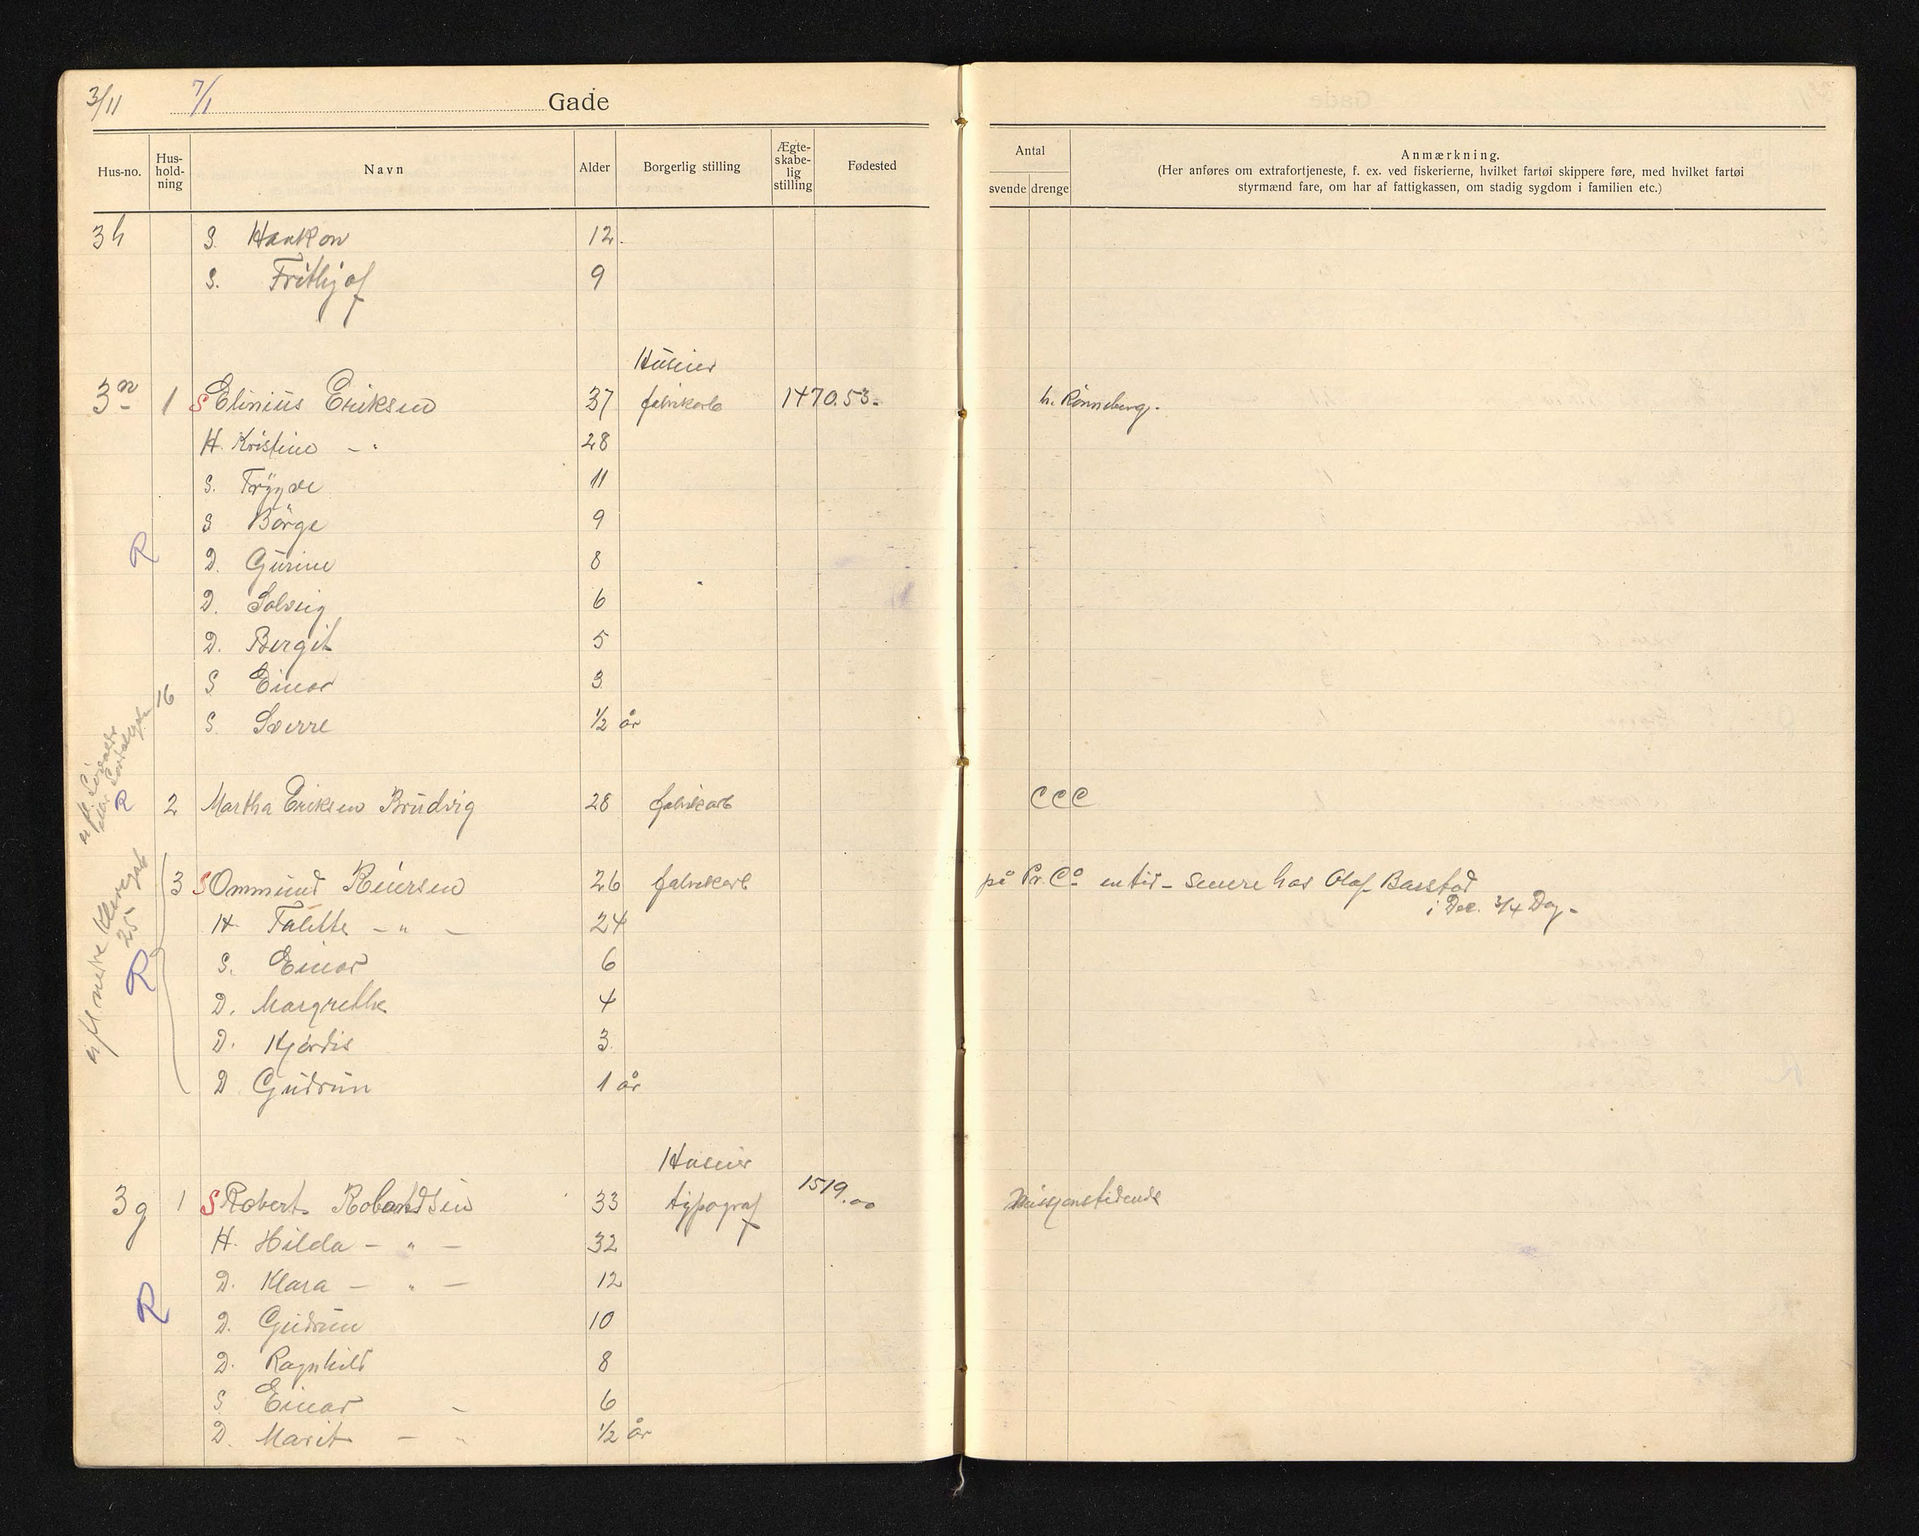 3/11 7/1 Gade
Hus-no. Hus-hold-ning Navn Alder Borgerlig stilling Ægte-skabe-lig stilling Fødested
Antal svende drenge
Anmærkning.
(Her anføres om extrafortjeneste, f. ex. ved fiskerierne, hvilket fartøi skippere føre, med hvilket fartøi
styrmænd fare, om har af fattigkassen, om stadig sygdom i familien etc.)
3h S. Haakon 12
S. Frithjof 9
Huseier
3n 1 S Elinius Eriksen 37 fabrikarb 1470.53. h. Rønneberg.
H. Kristine - " 28
S. Trygve 11
S Børge 9
R D. Gurine 8
D. Solveig 6
D. Bergit 5
S Einar 3
16
S. Sverre 1/2 år
R 2 Martha Eriksen Brudvig 28 fabrikarb CCC
3 S Ommund Reiersen 26 fabrikarb på Pr. Co en tid - senere hos Olaf Barstad
i Dec. 3/4 Dag -
H. Talette - " - 24
25
R S. Einar 6
D. Margrethe 4
D. Hjørdis 3
D Gudrun 1 år
Huseier
3g 1 S Robert Robertsen 33 typograf 1519.00 Missjonstidende
H. Hilda - " - 32
D. Klara - " - 12
R D. Gudrun 10
D. Ragnhild 8
S Einar - 6
D. Marit - " 1/2 år